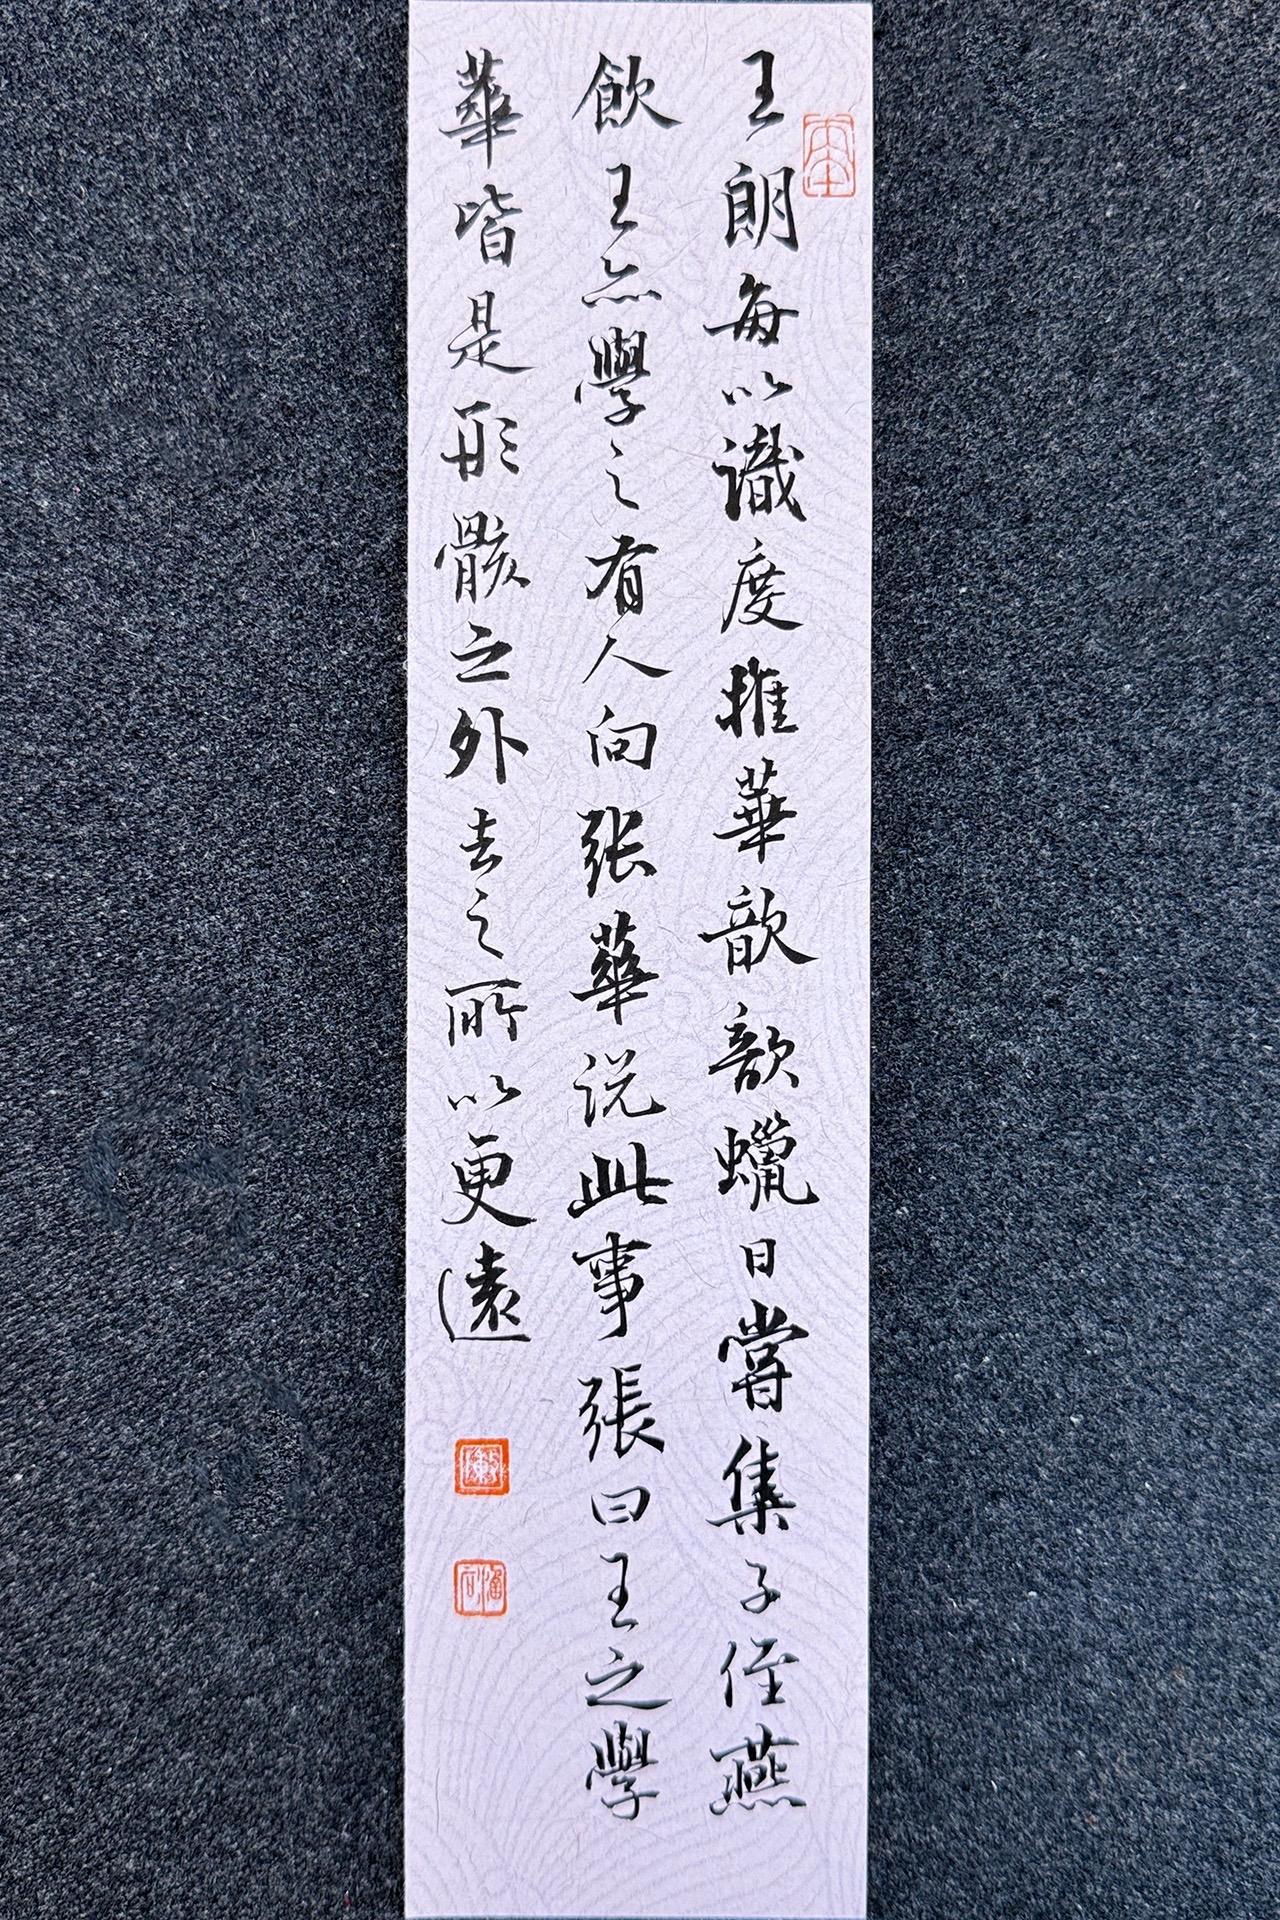 王朗每以識度推華歆歆蠟日嘗集子侄燕
飲王亦學之有人向張華説此事張曰王之學
華皆是形骸之外去之所以更遠